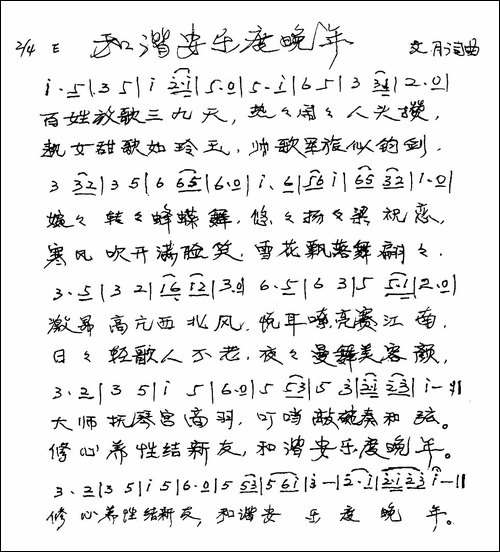 2/4 E 和谐安乐度晚年 文月词曲
i·5|35|i 2·i|5·0|5·i|65|3 34|2·0|
百姓放歌三九天，热々闹々人头攒，
靓女甜歌如玲玉，帅歌军旅似钧剑，
3 32|35|6 65|6·0|i·6|56 i|65 32|1·0|
婉々转々蜂蝶舞，悠々扬々梁祝恋，
寒风吹开满脸笑，雪花飘落舞翩々，
3·5|32|16 12|3·0|6·5|63|5 5·1|2·0|
激昂高亢西北风，悦耳嘹亮赛江南，
日々轻歌人不老，夜々曼舞美容颜，
3·2|35|i 5|6·0|5 53|5 3|2·i 23|i-||
大师抚琴宫商羽，叮当敲碗奏和弦。
修心养性结新友，和谐安乐度晚年。
3·2|35|i5|6·0|5 53|56i|3-|2·i|2·i23|i-||
修心养性结新友，和谐安乐度晚年。